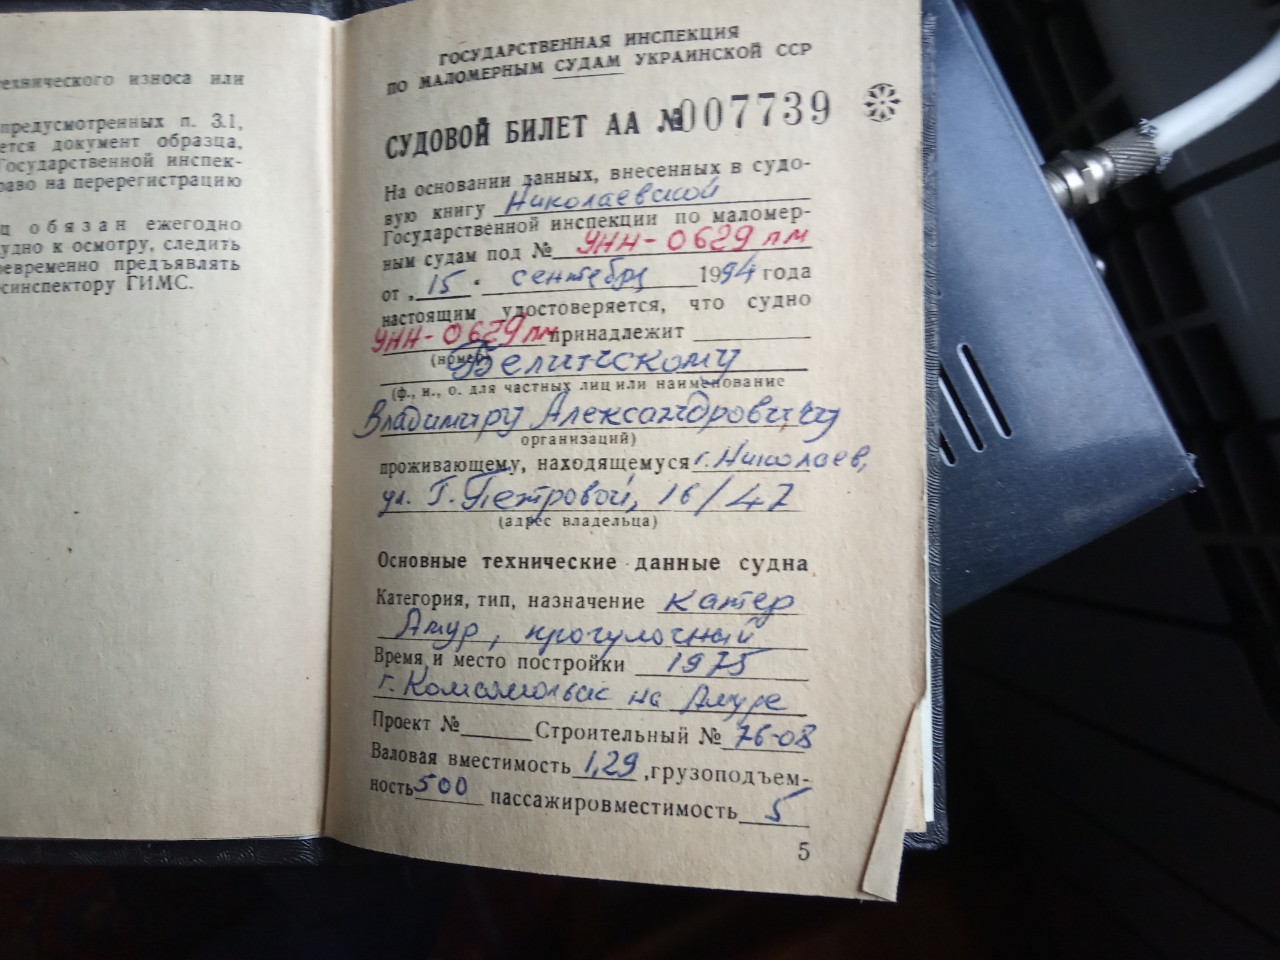 технического износа или
предусмотренных п. 3.1,
ется документ образца,
Государственной инспек-
раво на перерегистрацию
ц обязан ежегодно
удно к осмотру, следить
оевременно предъявлять
синспектору ГИМС.
ГОСУДАРСТВЕННАЯ ИНСПЕКЦИЯ
ПО МАЛОМЕРНЫМ СУДАМ УКРАИНСКОЙ ССР
СУДОВОЙ БИЛЕТ АА №007739
На основании данных, внесенных в судо-
вую книгу Николаевской
Государственной инспекции по маломер-
ным судам под № УНН-0629 пм
от „15" сентября 1994 года
настоящим удостоверяется, что судно
УНН-0629 пм принадлежит
(номер)
Велитскому
(ф., и., о. для частных лиц или наименование
Владимиру Александровичу
организаций)
проживающему, находящемуся г. Николаев,
ул. Г. Петровой, 16/47
(адрес владельца)
Основные технические данные судна
Категория, тип, назначение катер
Амур, прогулочный
Время и место постройки 1975
г. Комсомольск на Амуре
Проект № Строительный № 76-08
Валовая вместимость 1,29, грузоподъем-
ность 500 пассажировместимость 5
5